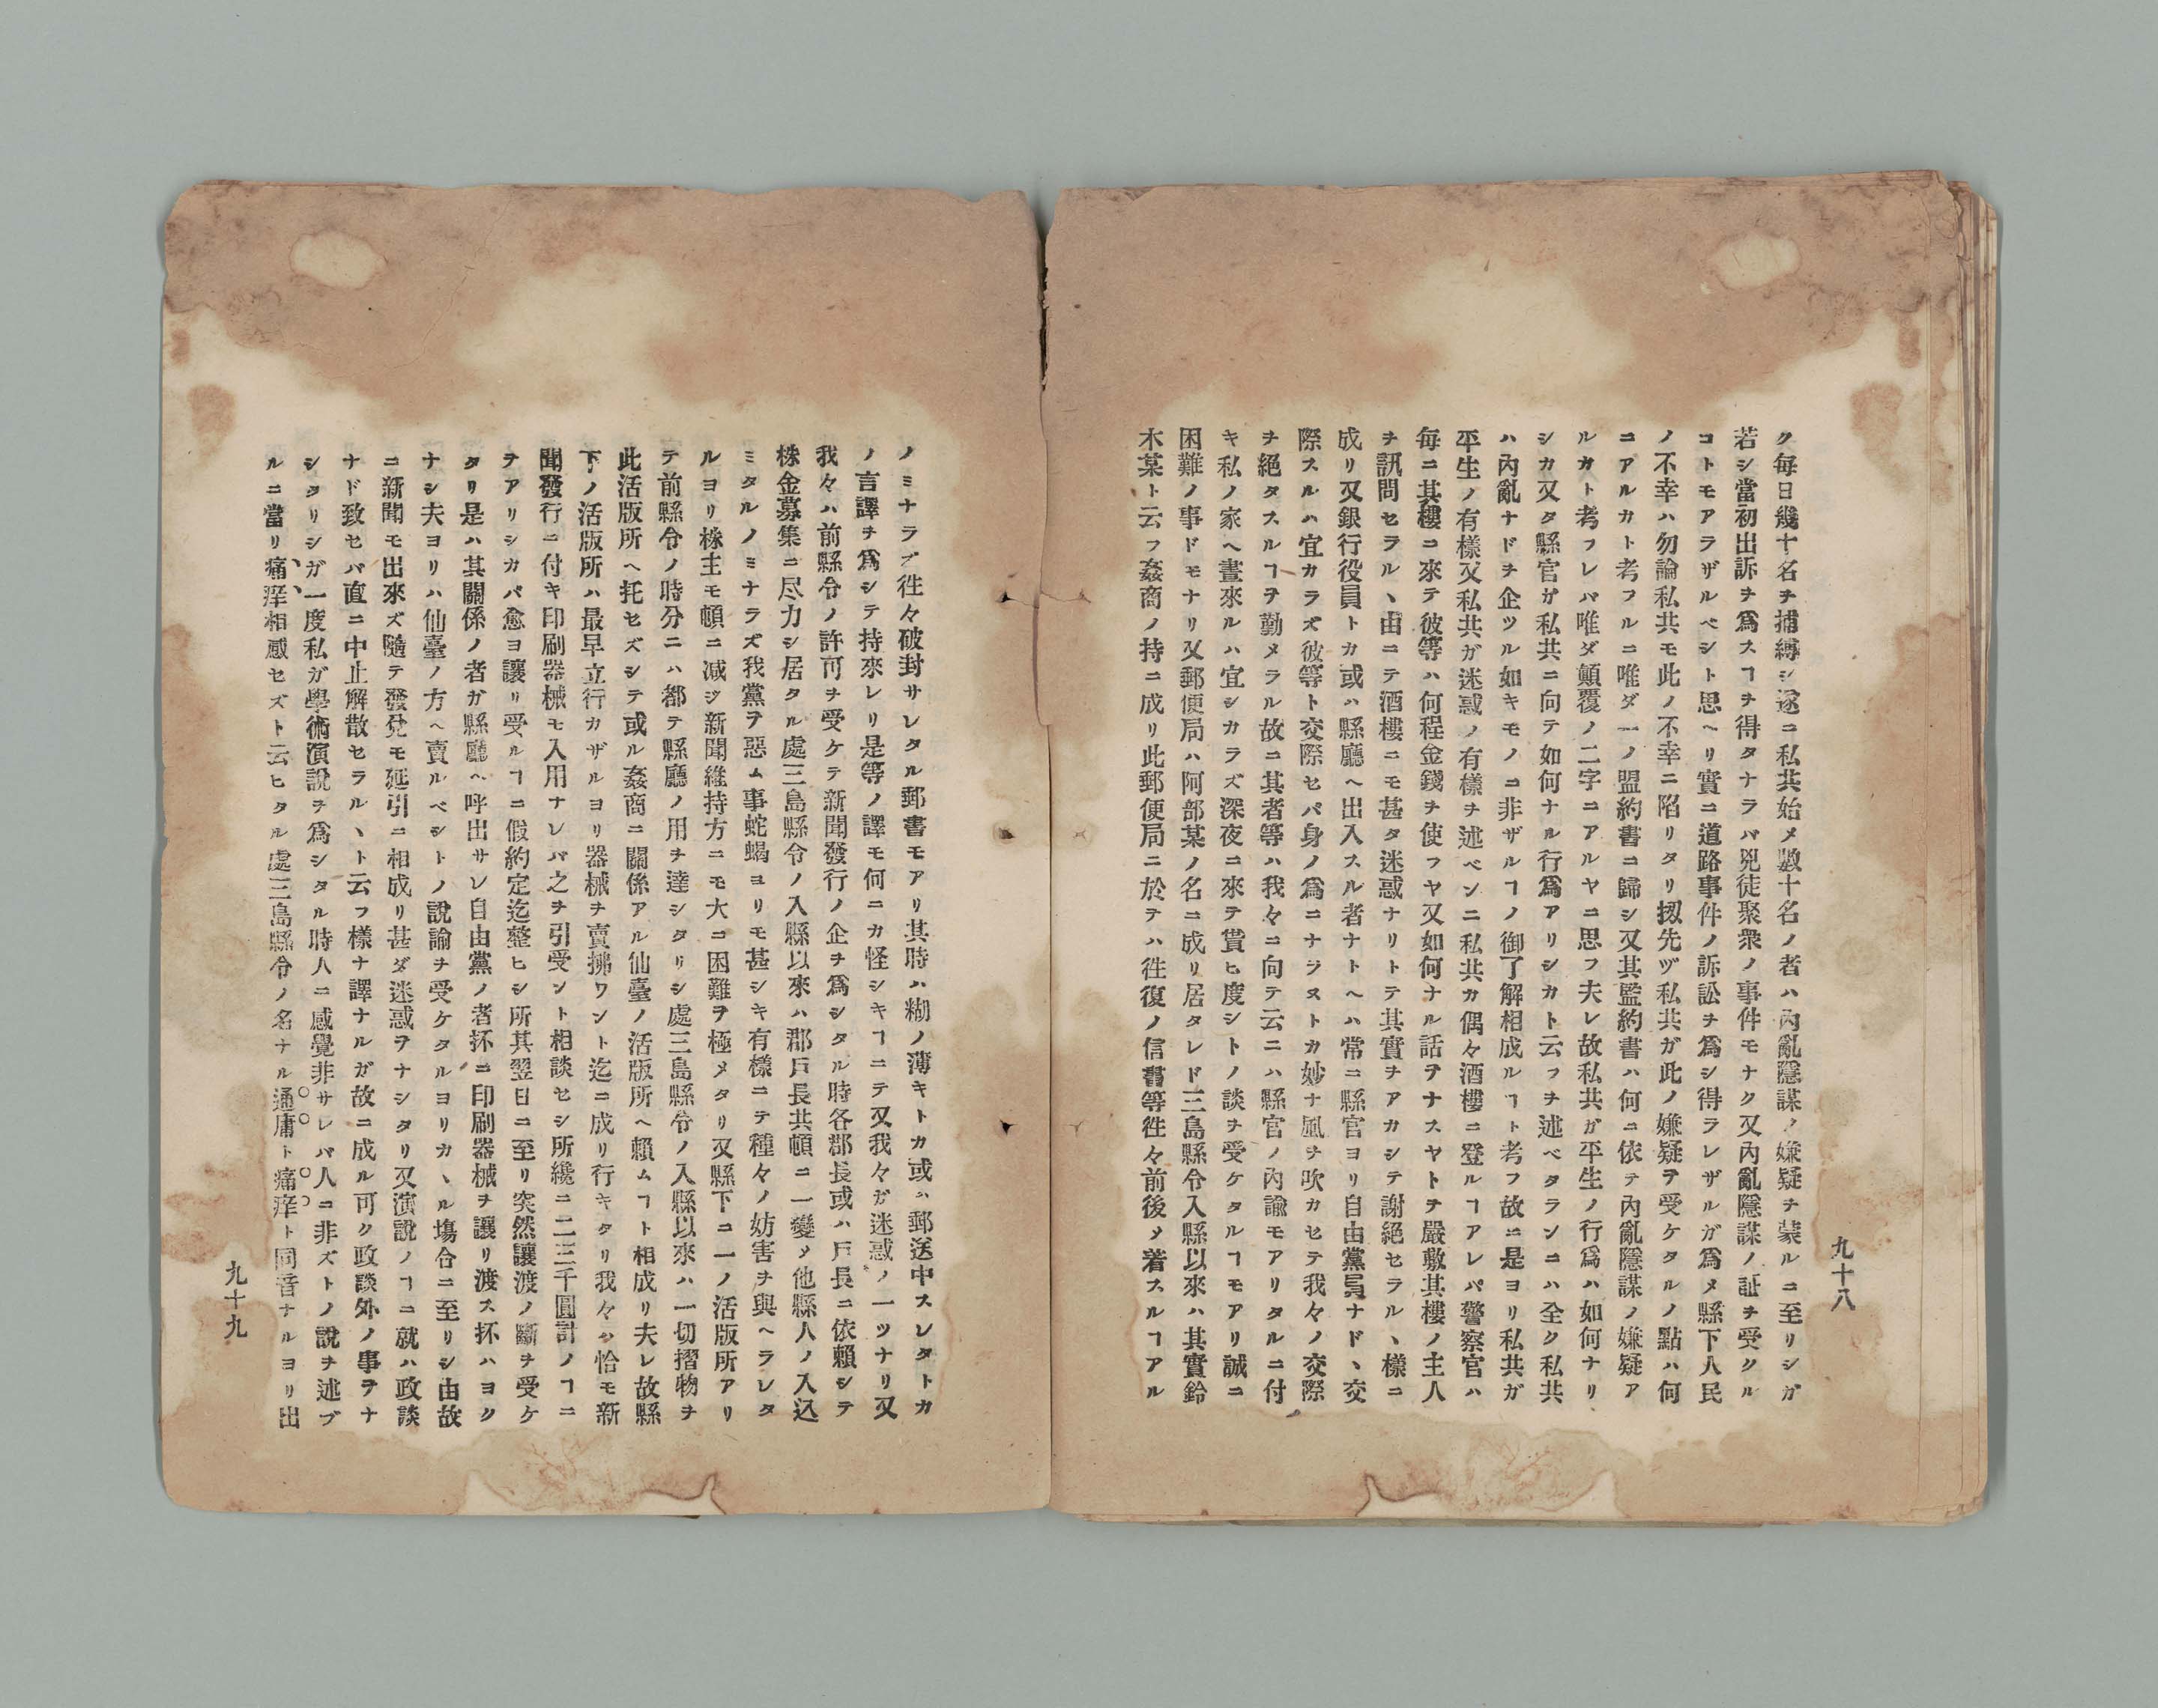 九十八
ク毎日幾十名ヲ捕縛シ遂ニ私共始メ數十名ノ者ハ內亂隱謀ノ嫌疑ヲ蒙ルニ至リシガ
若シ當初出訴ヲ爲スヿヲ得タナラバ兇徒聚衆ノ事件モナク又內亂隱謀ノ証ヲ受クル
コトモアラザルベシト思ヘリ實ニ道路事件ノ訴訟ヲ爲シ得ラレザルガ爲メ縣下人民
ノ不幸ハ勿論私共モ此ノ不幸ニ陷リタリ扨先ヅ私共ガ此ノ嫌疑ヲ受ケタルノ點ハ何
ニアルカト考フルニ唯ダ一ノ盟約書ニ歸シ又其監約書ハ何ニ依テ內亂隱謀ノ嫌疑ア
ルカト考フレバ唯ダ顛覆ノ二字ニアルヤニ思フ夫レ故私共ガ平生ノ行爲ハ如何ナリ
シカ又タ縣官ガ私共ニ向テ如何ナル行爲アリシカト云フヲ述ベタランニハ全ク私共
ハ內亂ナドヲ企ツル如キモノニ非ザルヿノ御了解相成ルヿト考フ故ニ是ヨリ私共ガ
平生ノ有樣又私共ガ迷惑ノ有樣ヲ述ベンニ私共カ偶々酒樓ニ登ルヿアレバ警察官ハ
毎ニ其樓ニ來テ彼等ハ何程金錢ヲ使フヤ又如何ナル話ヲナスヤトヲ嚴敷其樓ノ主人
ヲ訊問セラルヽ由ニテ酒樓ニモ甚タ迷惑ナリトテ其實ヲアカシテ謝絕セラルヽ樣ニ
成リ又銀行役員トカ或ハ縣廳ヘ出入スル者ナトヘハ常ニ縣官ヨリ自由黨員ナドヽ交
際スルハ宜カラズ彼等ト交際セバ身ノ爲ニナラヌトカ妙ナ風ヲ吹カセテ我々ノ交際
ヲ絕タスルヿヲ勤メラル故ニ其者等ハ我々ニ向テ云ニハ縣官ノ內諭モアリタルニ付
キ私ノ家ヘ晝來ルハ宜シカラズ深夜ニ來テ貰ヒ度シトノ談ヲ受ケタルヿモアリ誠ニ
困難ノ事ドモナリ又郵便局ハ阿部某ノ名ニ成リ居タレド三島縣令入縣以來ハ其實鈴
木某ト云フ姦商ノ持ニ成リ此郵便局ニ於テハ徃復ノ信書等徃々前後メ着スルヿアル
ノミナラズ徃々破封サレタル郵書モアリ其時ハ糊ノ薄キトカ或ハ郵送中スレタトカ
ノ言譯ヲ爲シテ持來レリ是等ノ譯モ何ニカ怪シキヿニテ又我々ガ迷惑ノ一ツナリ又
我々ハ前縣令ノ許可ヲ受ケテ新聞發行ノ企ヲ爲シタル時各郡長或ハ戶長ニ依賴シテ
株金募集ニ尽力シ居タル處三島縣令ノ入縣以來ハ郡戶長共頓ニ一變メ他縣人ノ入込
ミタルノミナラズ我黨ヲ惡ム事蛇蝎ヨリモ甚シキ有樣ニテ種々ノ妨害ヲ與ヘラレタ
ルヨリ株主モ頓ニ减ジ新聞維持方ニモ大ニ困難ヲ極メタリ又縣下ニ一ノ活版所アリ
テ前縣令ノ時分ニハ都テ縣廳ノ用ヲ達シタリシ處三島縣令ノ入縣以來ハ一切摺物ヲ
此活版所ヘ托セズシテ或ル姦商ニ關係アル仙臺ノ活版所ヘ賴ムヿト相成リ夫レ故縣
下ノ活版所ハ最早立行カザルヨリ器械ヲ賣拂ワント迄ニ成リ行キタリ我々ハ恰モ新
聞發行ニ付キ印刷器械モ入用ナレバ之ヲ引受ント相談セシ所纔ニ二三千圓計ノヿニ
テアリシカバ愈ヨ讓リ受ルヿニ假約定迄整ヒシ所其翌日ニ至リ突然讓渡ノ斷ヲ受ケ
タリ是ハ其關係ノ者ガ縣廳ヘ呼出サレ自由黨ノ者抔ニ印刷器械ヲ讓リ渡ス抔ハヨク
ナシ夫ヨリハ仙臺ノ方ヘ賣ルベシトノ說諭ヲ受ケタルヨリカヽル塲合ニ至リシ由故
ニ新聞モ出來ズ隨テ發兌モ延引ニ相成リ甚ダ迷惑ヲナシタリ又演說ノヿニ就ハ政談
ナド致セバ直ニ中止解散セラルヽト云フ樣ナ譯ナルガ故ニ成ル可ク政談外ノ事ヲナ
シタリシガ一度私ガ學術演說ヲ爲シタル時人ニ感覺非サレバ人ニ非ズトノ說ヲ述ブ
ルニ當リ痛痒相感セズト云ヒタル處三島縣令ノ名ナル通庸ト痛痒ト同音ナルヨリ出
九十九